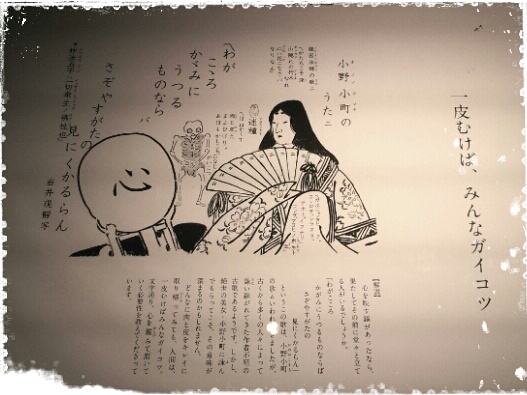 一皮むけば、みんなガイコツ
小野小町の
うたニ
わが
こころ
かゞみに
うつる
ものなら
バ
さぞやすがたの
見にくかるらん
岩井現解写
迷種
心
【解説】
心を映す鏡があったなら、
果たしてその前に堂々と立て
る人がいるでしょうか。
「わがこころ
かがみにうつるものならば
さぞやすがたの
見にくかるらん」
というこの歌は、小野小町
の歌ともいわれてきましたが、
古くから多くの人々によって
詠い継がれてきた作者不明の
古歌であるようです。しかし、
絶世の美女・小野小町に詠ん
でもらってこそ、その意味が
深まるのかもしれません。
どんなに肉と皮をキレイに
取り繕ってみても、人間は、
一皮むけばみんなガイコツ。
文字通り、心を鑑みて磨いて
いく必要性を教えてくださって
います。